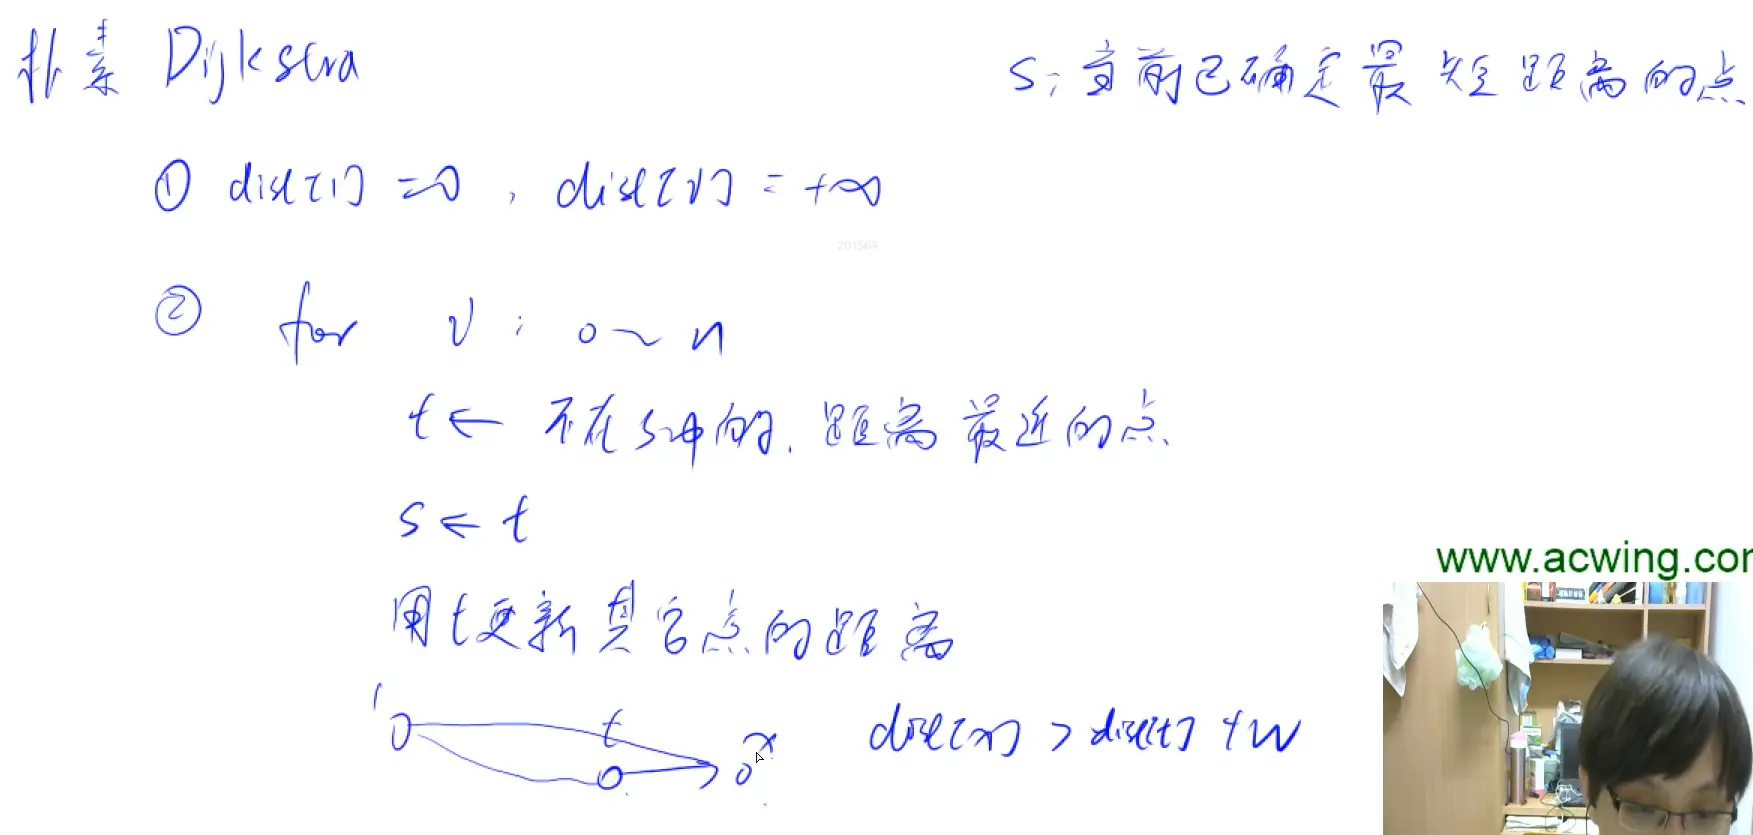 朴素 Dijkstra
S: 当前已确定最短距离的点
① dist[1] = 0, dist[v] = +∞
201569
② for v: 0 ~ n
t ← 不在S中的, 距离最近的点
S ← t
用t更新其它点的距离
1 t x
dist[x] > dist[t] + w
www.acwing.cor